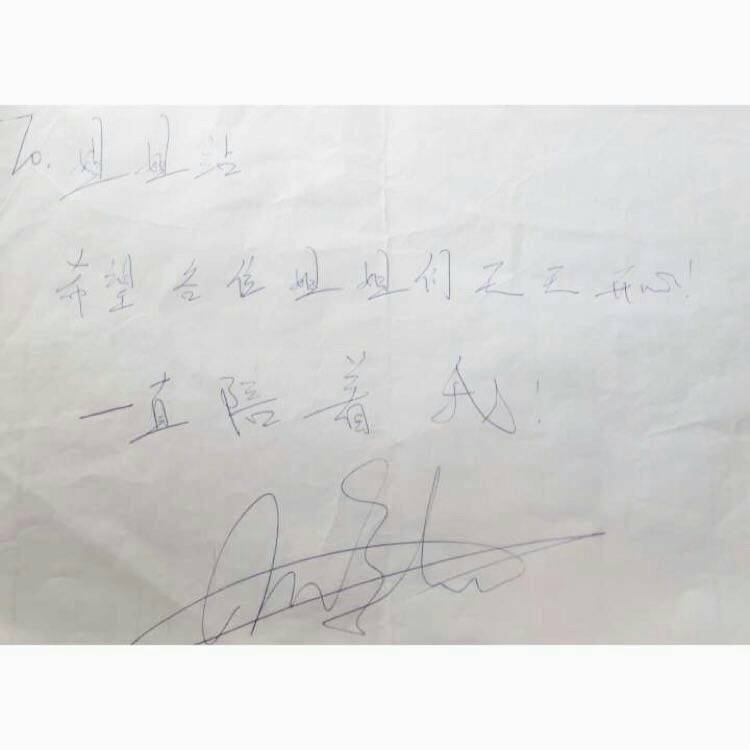 To. 姐姐站
希望各位姐姐们天天开心!
一直陪着我!